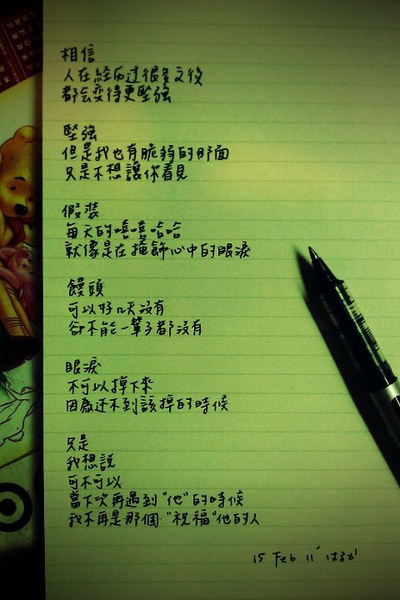 相信
人在经历过很多之後
都会变得更堅強
堅強
但是我也有脆弱的那面
只是不想讓你看見
假裝
每天的嘻嘻哈哈
就像是在掩飾心中的眼淚
饅頭
可以好几天没有
卻不能一輩子都沒有
眼淚
不可以掉下來
因為还不到該掉的時候
只是
我想說
可不可以
當下次再遇到"他"的時候
我不再是那個"祝福"他的人
15 Feb 11' はるか